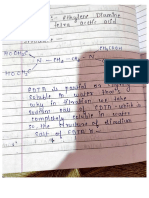 - Ethylene Diamine
Tetra acetic acid
HOOCH₂C
N - CH₂ - CH₂ - N
HOOCH₂C
EDTA is
soluble in water that's
why in titration we take
sodium salt of EDTA which is
completely soluble in water
so, the structure of disodium
salt of EDTA is